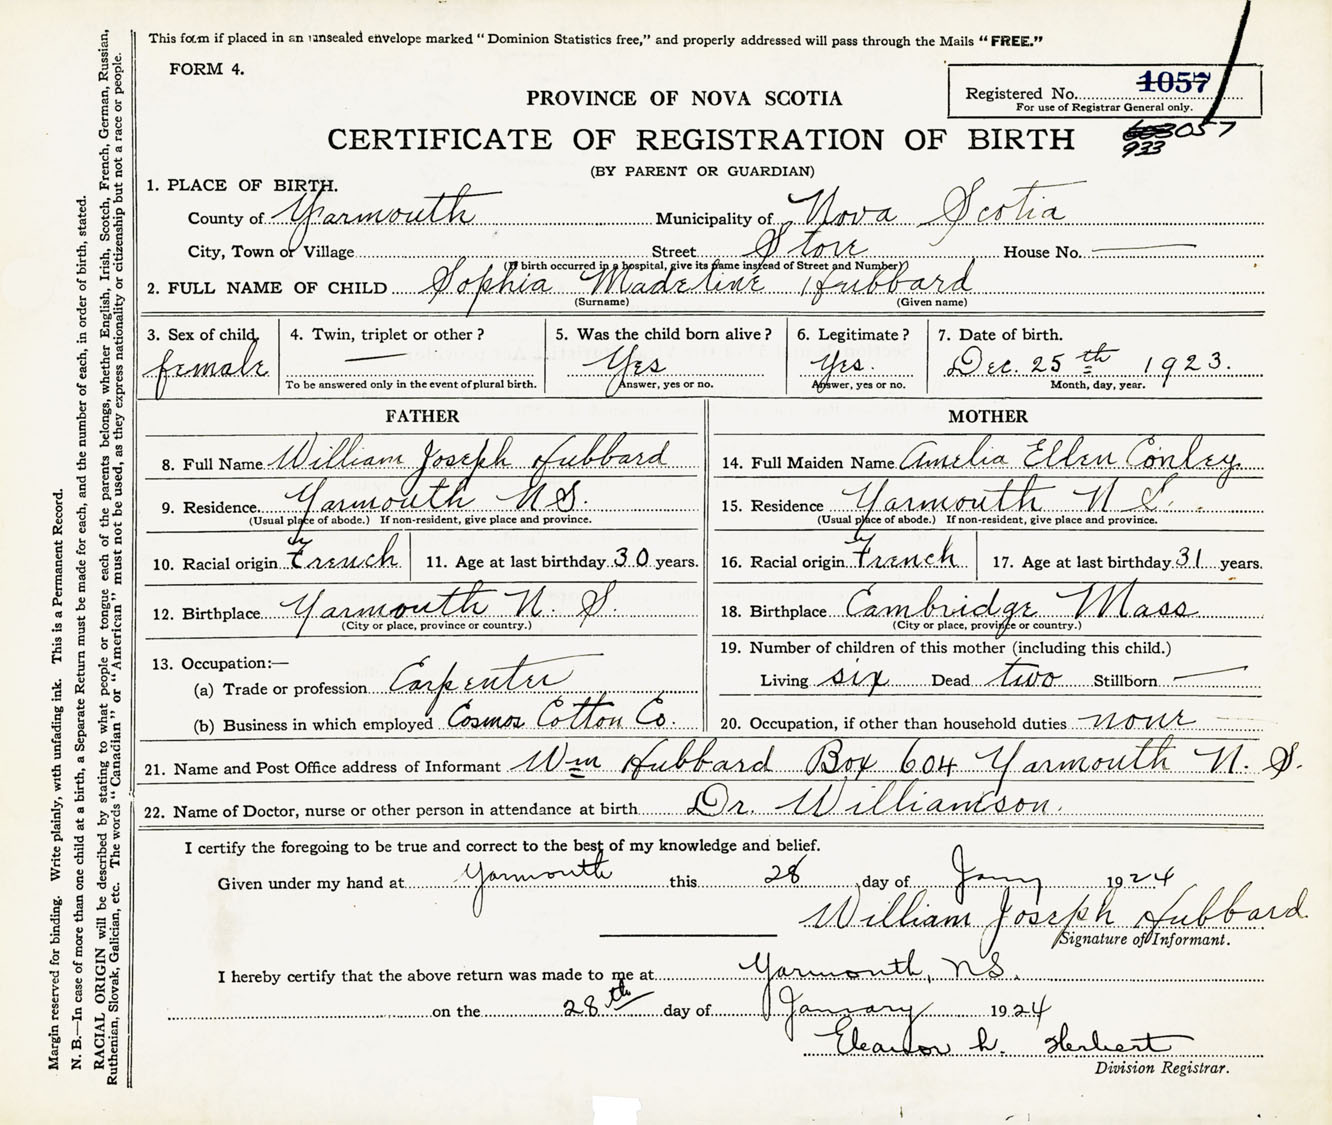 This form if placed in an unsealed envelope marked "Dominion Statistics free," and properly addressed will pass through the Mails "FREE."
FORM 4.
Registered No. 1057
For use of Registrar General only.
057
933
PROVINCE OF NOVA SCOTIA
CERTIFICATE OF REGISTRATION OF BIRTH
(BY PARENT OR GUARDIAN)
1. PLACE OF BIRTH.
County of Yarmouth Municipality of Nova Scotia
City, Town or Village Street Store House No. —
(If birth occurred in a hospital, give its name instead of Street and Number)
2. FULL NAME OF CHILD Sophia Madeline Hubbard
(Surname) (Given name)
3. Sex of child 4. Twin, triplet or other? 5. Was the child born alive? 6. Legitimate? 7. Date of birth.
female — Yes Yes. Dec. 25th 1923.
To be answered only in the event of plural birth. Answer, yes or no. Answer, yes or no. Month, day, year.
FATHER MOTHER
8. Full Name William Joseph Hubbard 14. Full Maiden Name Amelia Ellen Conley
9. Residence Yarmouth N S. 15. Residence Yarmouth N S.
(Usual place of abode.) If non-resident, give place and province. (Usual place of abode.) If non-resident, give place and province.
10. Racial origin French 11. Age at last birthday 30 years. 16. Racial origin French 17. Age at last birthday 31 years.
12. Birthplace Yarmouth N. S. 18. Birthplace Cambridge Mass
(City or place, province or country.) (City or place, province or country.)
13. Occupation:— 19. Number of children of this mother (including this child.)
(a) Trade or profession Carpenter Living six Dead two Stillborn —
(b) Business in which employed Cosmos Cotton Co. 20. Occupation, if other than household duties none
21. Name and Post Office address of Informant Wm Hubbard Box 604 Yarmouth N. S.
22. Name of Doctor, nurse or other person in attendance at birth Dr. Williamson.
I certify the foregoing to be true and correct to the best of my knowledge and belief.
Given under my hand at Yarmouth this 28 day of Jany 1924
William Joseph Hubbard
Signature of Informant.
I hereby certify that the above return was made to me at Yarmouth, N S.
on the 28th day of January 1924
Eleanor L. Herbert
Division Registrar.
Margin reserved for binding. Write plainly, with unfading ink. This is a Permanent Record.
N. B.—In case of more than one child at a birth, a Separate Return must be made for each, and the number of each, in order of birth, stated.
RACIAL ORIGIN will be described by stating to what people or tongue each of the parents belongs, whether English, Irish, Scotch, French, German, Russian,
Ruthenian, Slovak, Galician, etc. The words "Canadian" or "American" must not be used, as they express nationality or citizenship but not a race or people.